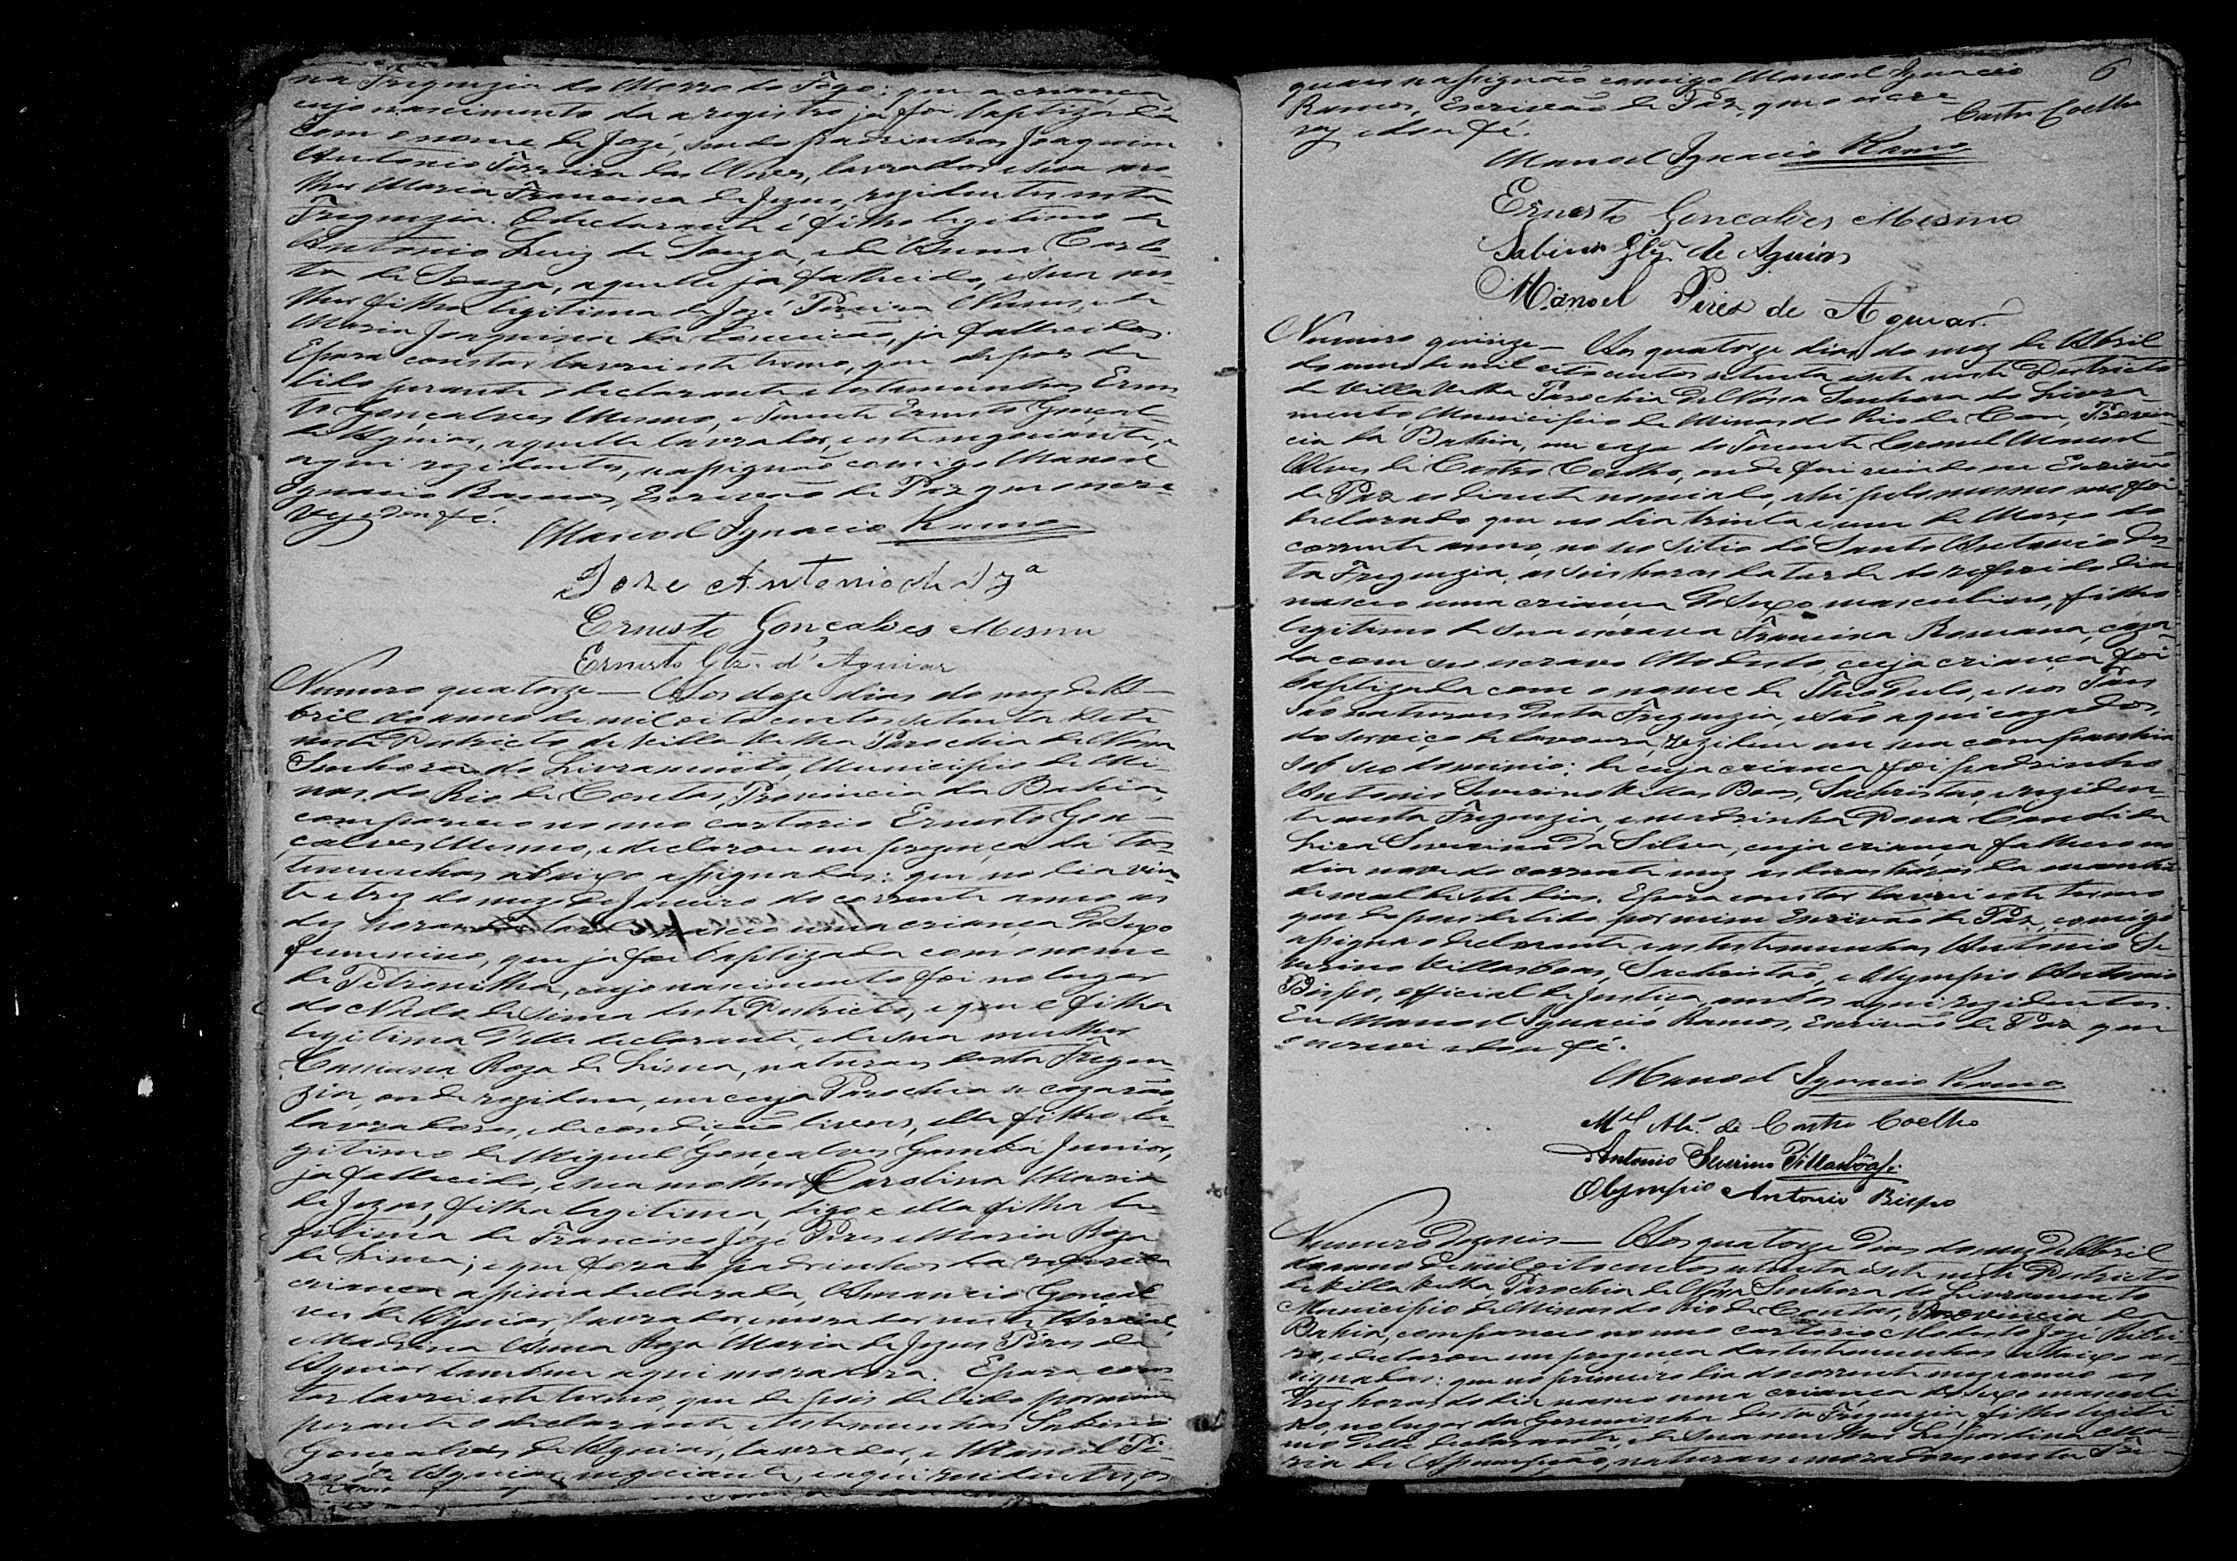 na Freguezia do Morro do Fogo; que a criança
cujo nascimento da a registro ja foi baptizada
com o nome de Jozé, sendo padrinhos Joaquim
Antonio Ferreira das Neves, lavrador e sua mu-
lher Maria Francisca de Jezus, rezidentes nesta
Freguezia. O declarante é filho legitimo de
Antonio Luiz de Souza, e de Anna Carlo-
ta de Souza, aquelle ja fallecido, e sua mu-
lher filha legitima de Jozé Pereira e de
Maria Joaquina da Conceição, ja fallecidos.
E para constar lavrei este termo, que depois de
lido perante o declarante e testemunhas Ernes-
to Gonçalves Mesmo, e Tenente Ernesto Gonçal-
de Aguiar, aquelle lavrador, e este negociante, e
aqui rezidentes, e assignão comigo Manoel
Ignacio Ramos, Escrivão de Paz que o escre-
vy e dou fé.
Manoel Ignacio Ramos
Joze Antonio de Sza
Ernesto Gonçalves Mesmo
Ernesto Glz. d'Aguiar
Numero quatorze — Aos doze dias do mez de A-
bril do anno de mil oito centos setenta e sete
neste Districto de Villa Velha Parochia de Nossa
Senhora do Livramento, Municipio de Mi-
nas do Rio de Contas, Provincia da Bahia,
compareceo no meo cartorio Ernesto Gon-
çalves Mesmo, e declarou em prezença das tes-
temunhas abaixo assignadas: que no dia vin-
te e trez do mez de Janeiro do corrente anno as
dez horas nasceo uma criança do sexo
femenino, que ja foi baptizada com o nome
de Petronilha, cujo nascimento foi no lugar
do deste Districto, e que é filha
legitima delle declarante, e de sua mulher
Cassiana Roza de Lima, naturaes desta Fregue-
zia, onde rezidem, em cuja Parochia se cazarão,
lavradores, e de condição livres, elle filho le-
gitimo de Miguel Gonçalves Gambá Junior,
ja fallecido, e sua mulher Carolina Maria
de Jezus, filha legitima, digo e ella filha le-
gitima de Francisco Jozé Pires e Maria Roza
de Lima; e que forão padrinhos da referida
criança assima declarada, Amancio Gonçal-
ves de Aguiar, lavrador e morador neste Arraial,
e Madrinha Anna Roza Maria de Jezus Pires de
Aguiar tambem aqui moradora. E para cons-
tar lavrei este termo, que depois de lido por mim
perante o declarante, e testemunhas Sabino
Gonçalves de Aguiar, lavrador, e Manoel Pi-
res de Aguiar negociante, e aqui rezidentes, os
quaes assignão comigo Manoel Ignacio
Ramos, Escrivão de Paz, que o escre-
vy e dou fé.
6
Castro Coelho
Manoel Ignacio Ramos
Ernesto Goncalves Mesmo
Sabino Glz de Aguiar
Manoel Pires de Aguiar.
Numero quinze — Aos quatorze dias do mez de Abril
do anno de mil oito centos setenta e sete neste Districto
de Villa Velha Parochia de Nossa Senhora do Livra-
mento, Municipio de Minas do Rio de Contas, Provin-
cia da Bahia, em caza do Tenente Coronel Manoel
Alves de Castro Coelho, onde foi vindo eu Escrivão
de Paz ao diante nomiado, ahi pelo mesmo me foi
declarado que no dia trinta e um de Março do
corrente anno, no seo Sitio de Santo Antonio des-
ta Freguezia, as seis horas da tarde do referido dia
nasceo uma criança do sexo masculino, filho
legitimo de sua escrava Francisca Romana, caza-
da com seo escravo Modesto, cuja criança foi
baptizada com o nome de Theodulo, e seos Paes
são naturaes desta Freguezia, e são aqui cazados,
do serviço de lavoura, rezidem em sua companhia
sob seo dominio; de cuja criança foi padrinho
Antonio Severino Villas Boas, Sachristão, reziden-
te nesta Freguezia, e madrinha Dona Candida
Lira Severina da Silva, cuja criança falleceo no
dia nove do corrente mez as duas horas da manhã
de mal de sete dias. E para constar lavrei este termo
que depois de lido por mim Escrivão de Paz, comigo
assigna o declarante e as testemunhas Antonio Se-
verino Villasboas, Sachristão, e Olympio Antonio
Bispo, official de justiça, ambos aqui rezidentes.
Eu Manoel Ignacio Ramos, Escrivão de Paz que
o escrevi e dou fé.
Manoel Ignacio Ramos
Mel Alz. de Castro Coelho
Antonio Severino Villasbôas
Olympio Antonio Bispo
Numero Dezeseis — Aos quatorze dias do mez de Abril
do anno de mil oito centos setenta e sete neste Districto
de Villa Velha, Parochia de Nossa Senhora do Livramento
Municipio de Minas do Rio de Contas, Provincia da
Bahia, compareceo no meo cartorio Modesto Jozé Ribei-
ro, e declarou em prezença das testemunhas abaixo as-
signadas: que no primeiro dia do corrente mez e anno as
trez horas do dia nasceo uma criança do sexo masculi-
no, no lugar da desta Freguezia, filho legiti-
mo delle declarante, e de sua mulher Leopordina Ma-
ria de Assumpção, naturaes e moradores nesta Fre-